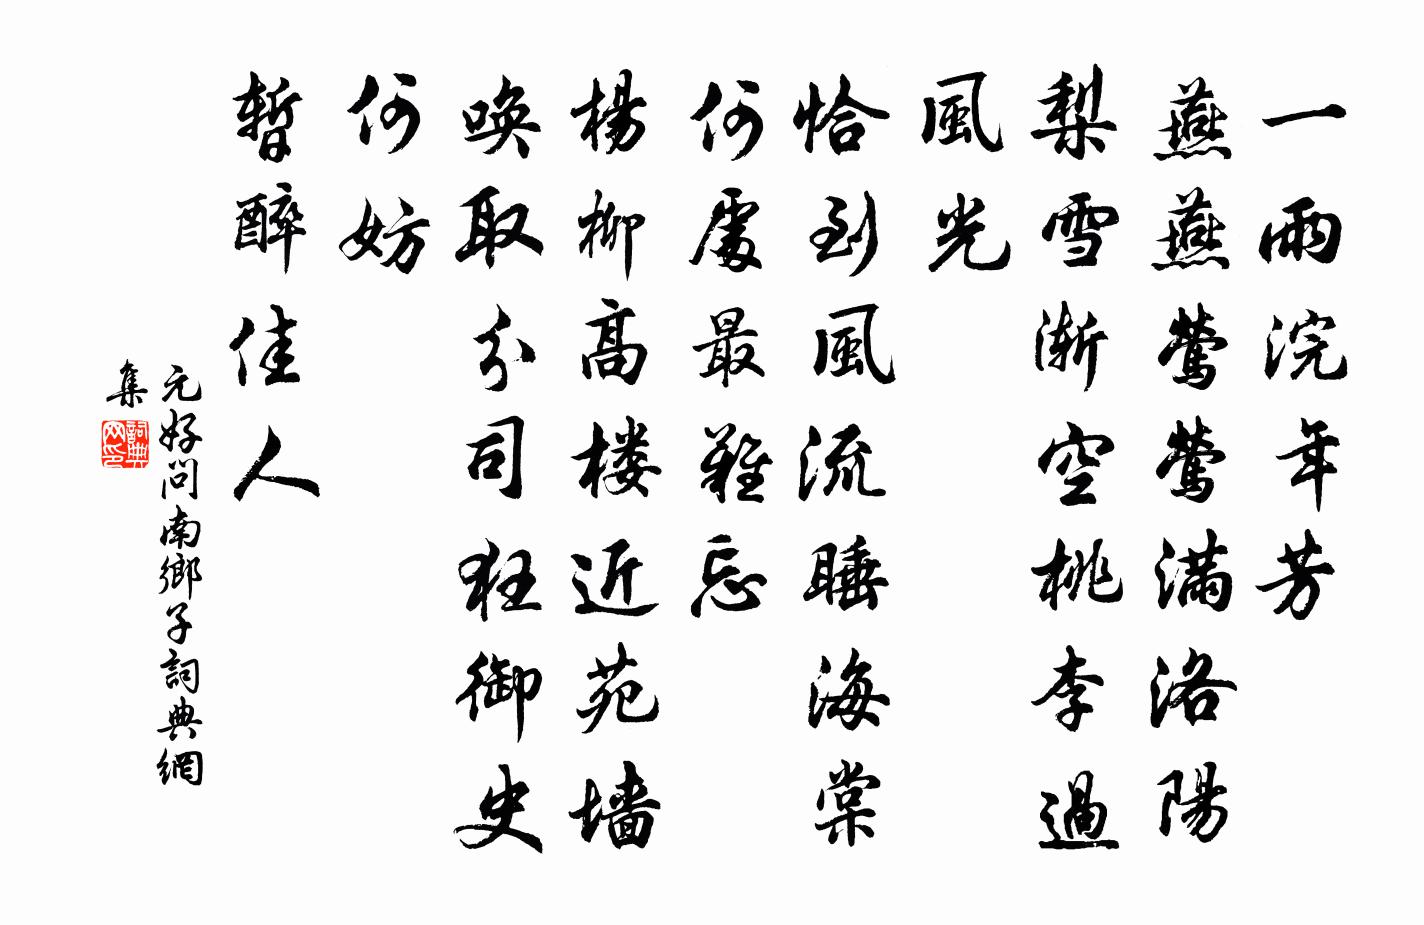 一雨浣年芳
燕燕鶯鶯满洛陽
梨雪漸空桃李過
風光
恰到風流睡海棠
何處最難忘
楊柳高楼近苑墙
唤取分司狂御史
何妨
暫醉佳人
元好問南鄉子詞典網
集
詞典
网印